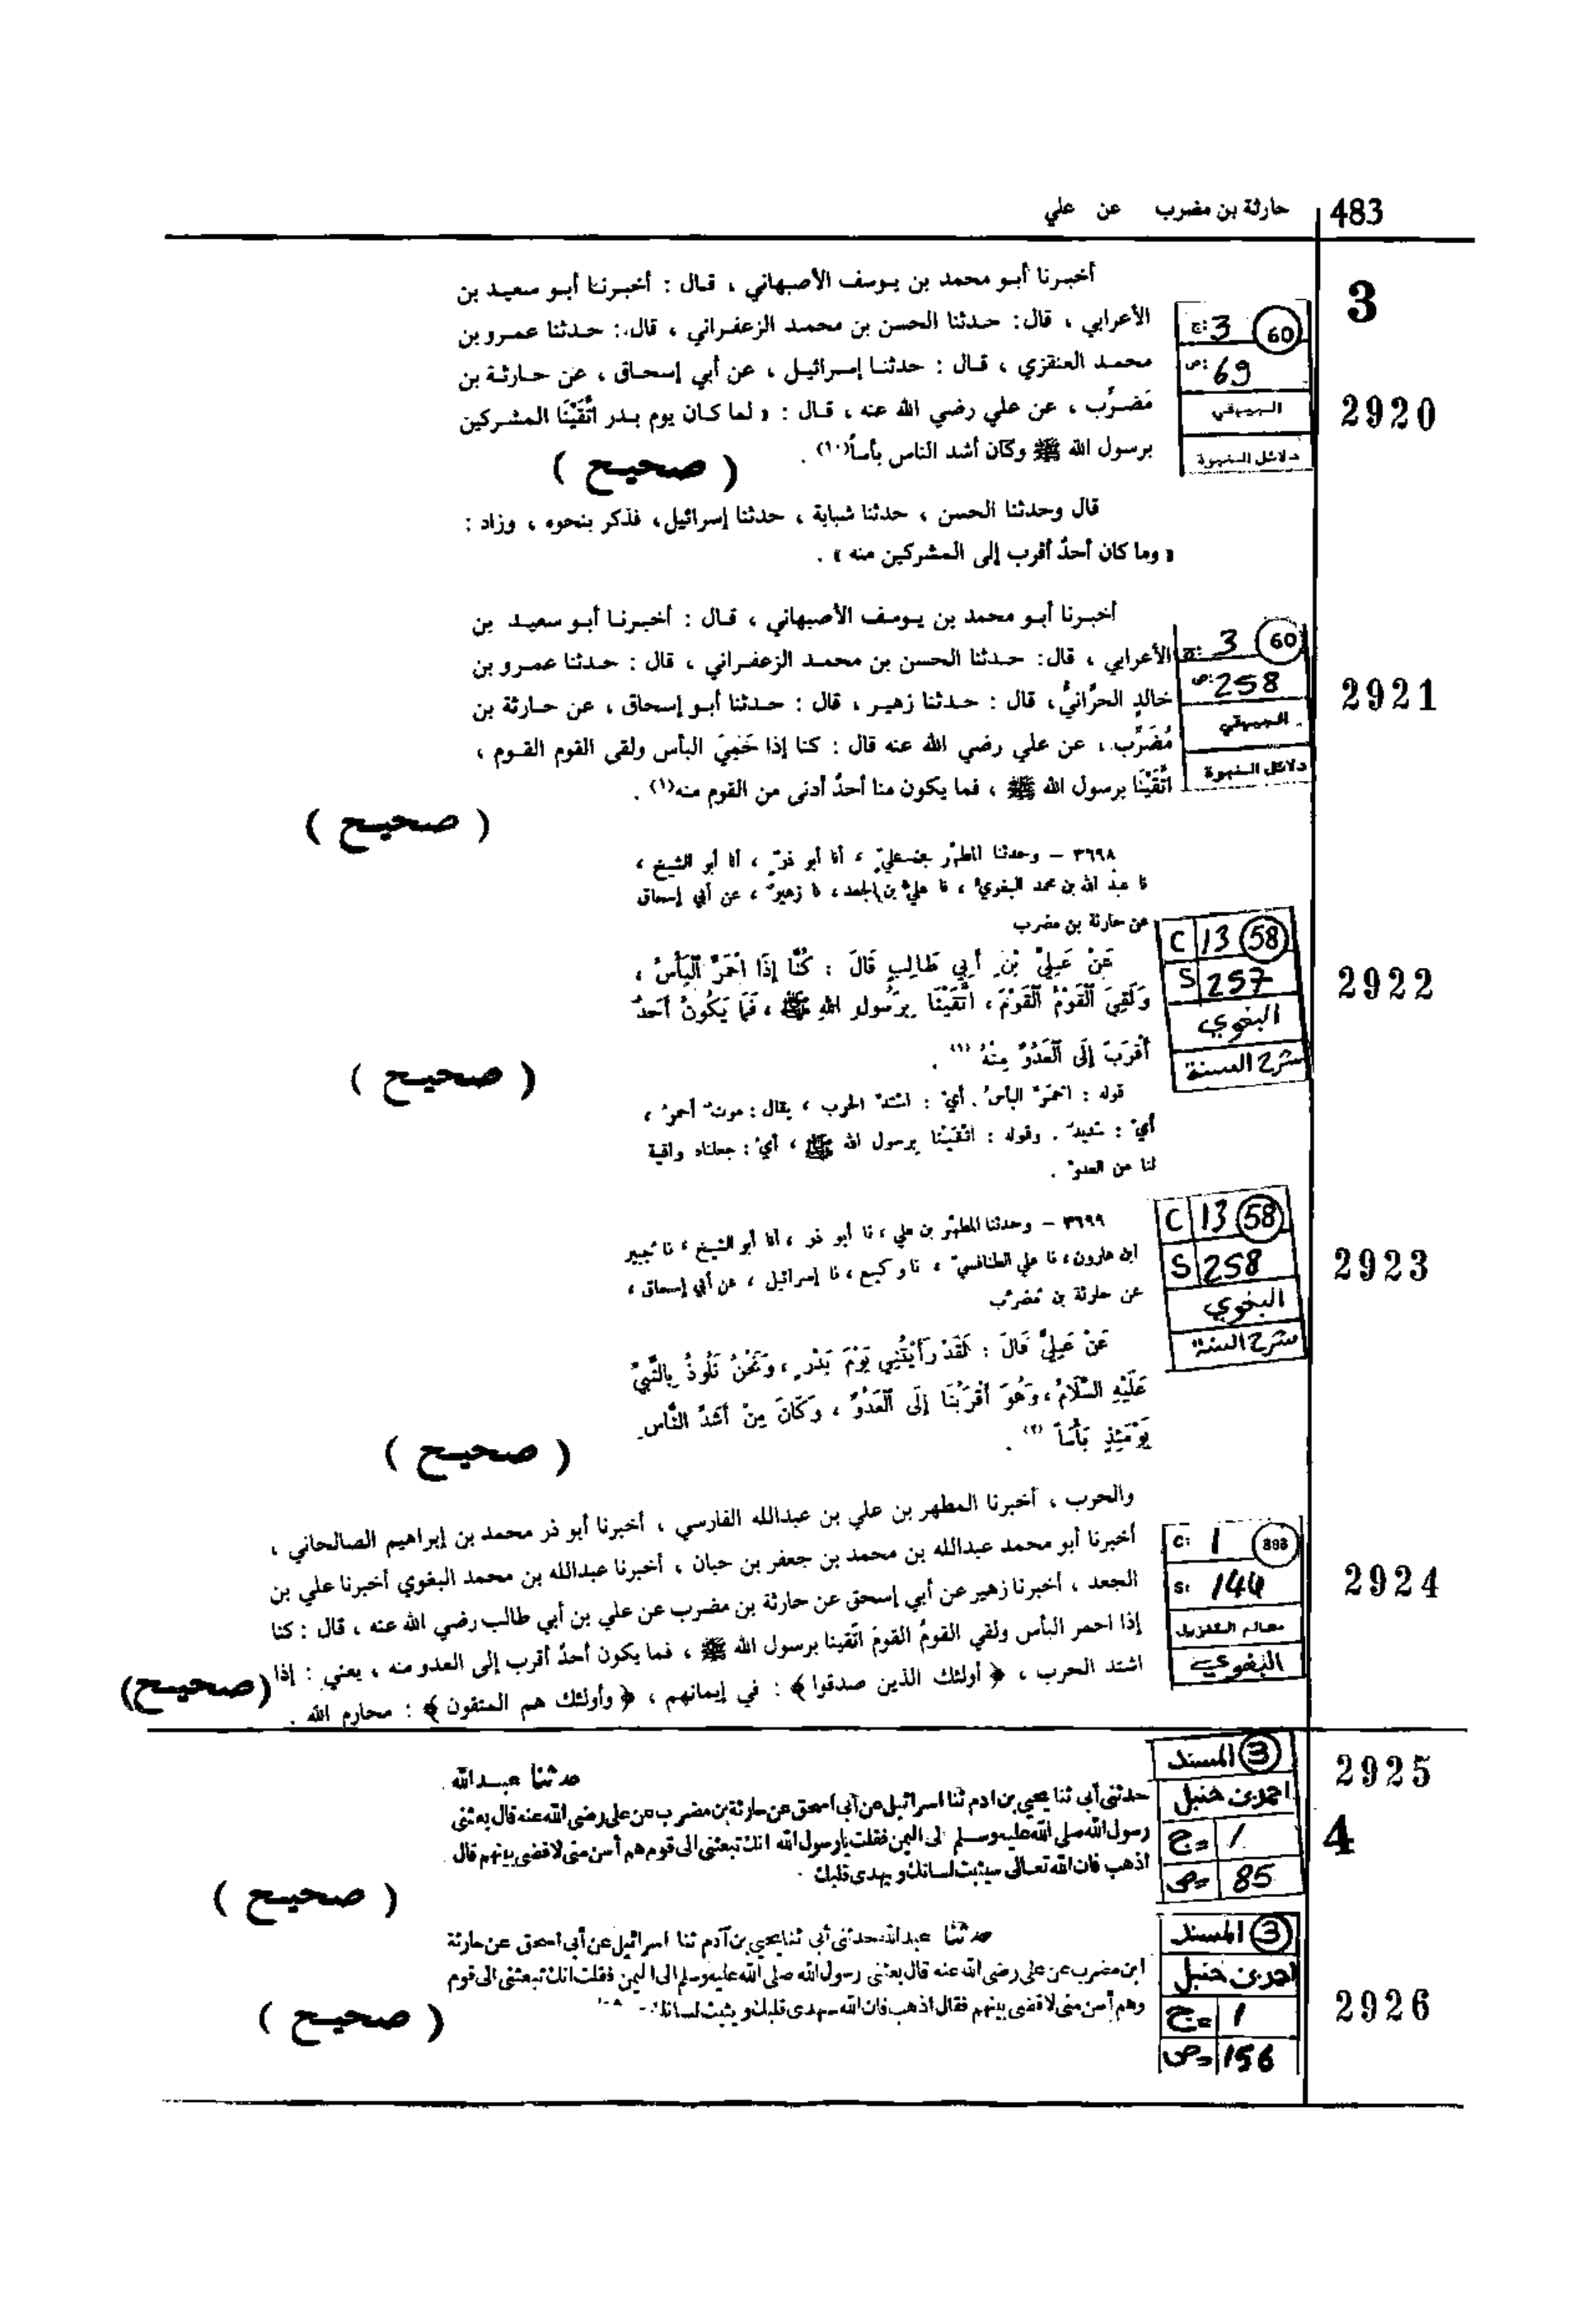 483
حارثة بن مضرب عن علي
3
2920
ج: 3 60
ص: 69
البيهقي
دلائل النبوة
أخبرنا أبو محمد بن يوسف الأصبهاني ، قال : أخبرنا أبو سعيد بن
الأعرابي ، قال : حدثنا الحسن بن محمد الزعفراني ، قال : حدثنا عمرو بن
محمد العنقزي ، قال : حدثنا إسرائيل ، عن أبي إسحاق ، عن حارثة بن
مَضرِّب ، عن علي رضي الله عنه ، قال : « لما كان يوم بدر اتَّقَيْنَا المشركين
برسول الله ﷺ وكان أشد الناس بأساً(١٠) .
( صحيح )
قال وحدثنا الحسن ، حدثنا شبابة ، حدثنا إسرائيل ، فذكر بنحوه ، وزاد :
« وما كان أحدٌ أقرب إلى المشركين منه » .
2921
ج: 3 60
ص: 258
البيهقي
دلائل النبوة
أخبرنا أبو محمد بن يوسف الأصبهاني ، قال : أخبرنا أبو سعيد بن
الأعرابي ، قال : حدثنا الحسن بن محمد الزعفراني ، قال : حدثنا عمرو بن
خالدٍ الحرَّانيُّ ، قال : حدثنا زهير ، قال : حدثنا أبو إسحاق ، عن حارثة بن
مُضَرِّب ، عن علي رضي الله عنه قال : كنا إذا حَمِيَ البأس ولقى القوم القوم ،
اتَّقَيْنَا برسول الله ﷺ ، فما يكون منا أحدٌ أدنى من القوم منه(١) .
( صحيح )
2922
C 13 58
S 257
البغوي
شرح السنة
٣٦٩٨ – وحدثنا المطهّر بن عليّ ، أنا أبو ذرّ ، أنا أبو الشيخ ،
نا عبد الله بن محمد البغويُّ ، نا عليُّ بن الجعد ، نا زهيرٌ ، عن أبي إسحاق
عن حارثة بن مضرب
عَنْ عَلِيِّ بْنِ أَبِي طَالِبٍ قَالَ : كُنَّا إِذَا احْمَرَّ الْبَأْسُ ،
وَلَقِيَ الْقَوْمُ الْقَوْمَ ، اتَّقَيْنَا بِرَسُولِ اللهِ ﷺ ، فَمَا يَكُونُ أَحَدٌ
أَقْرَبَ إِلَى الْعَدُوِّ مِنْهُ (١) .
( صحيح )
قوله : احمرّ البأسُ . أيْ : اشتدّ الحرب ، يقال : موتٌ أحمرُ ،
أيْ : شديدٌ . وقوله : اتّقَيْنا برسول الله ﷺ ، أيْ : جعلناه واقية
لنا من العدوّ .
2923
C 13 58
S 258
البغوي
شرح السنة
٣٦٩٩ – وحدثنا المطهّر بن علي ، نا أبو ذر ، أنا أبو الشيخ ، نا جبير
ابن هارون ، نا علي الطنافسيّ ، نا وكيع ، نا إسرائيل ، عن أبي إسحاق ،
عن حارثة بن مُضرِّب
عَنْ عَلِيٍّ قَالَ : لَقَدْ رَأَيْتُنِي يَوْمَ بَدْرٍ ، وَنَحْنُ نَلُوذُ بِالنَّبِيِّ
عَلَيْهِ السَّلَامُ ، وَهُوَ أَقْرَبُنَا إِلَى الْعَدُوِّ ، وَكَانَ مِنْ أَشَدِّ النَّاسِ
يَوْمَئِذٍ بَأْسًا (٢) .
( صحيح )
2924
C: 1 393
S: 144
معالم التنزيل
البغوي
والحرب ، أخبرنا المطهر بن علي بن عبدالله الفارسي ، أخبرنا أبو ذر محمد بن إبراهيم الصالحاني ،
أخبرنا أبو محمد عبدالله بن محمد بن جعفر بن حيان ، أخبرنا عبدالله بن محمد البغوي أخبرنا علي بن
الجعد ، أخبرنا زهير عن أبي إسحق عن حارثة بن مضرب عن علي بن أبي طالب رضي الله عنه ، قال : كنا
إذا احمر البأس ولقي القومُ القومَ اتّقينا برسول الله ﷺ ، فما يكون أحدٌ أقرب إلى العدو منه ، يعني : إذا
اشتد الحرب ، ﴿ أولئك الذين صدقوا ﴾ : في إيمانهم ، ﴿ وأولئك هم المتقون ﴾ : محارم الله .
(صحيح)
2925
4
3 المسند
احمد بن حنبل
ج= 1
ص= 85
حدثنا عبد الله
حدثنى أبى ثنا يحيى بن ادم ثنا اسرائيل عن أبى اسحق عن حارثة بن مضرب عن على رضى الله عنه قال بعثنى
رسول الله صلى الله عليه وسلم الى اليمن فقلت يا رسول الله انك تبعثنى الى قوم هم أسن منى لاقضى بينهم قال
اذهب فان الله تعالى سيثبت لسانك ويهدى قلبك
( صحيح )
2926
3 المسند
احمد بن حنبل
ج= 1
ص= 156
حدثنا عبد الله حدثنى أبى ثنا يحيى بن آدم ثنا اسرائيل عن أبى اسحق عن حارثة
ابن مضرب عن على رضى الله عنه قال بعثنى رسول الله صلى الله عليه وسلم الى اليمن فقلت انك تبعثنى الى قوم
وهم أسن منى لاقضى بينهم فقال اذهب فان الله سيهدى قلبك ويثبت لسانك
( صحيح )